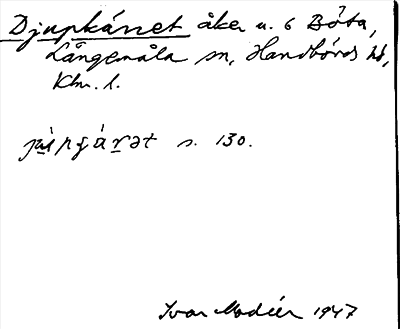 Djupkárret åker u. 6 Bóta,
Långemåla sn, Handbörds hd,
Klm. l.
s. 130.
Ivar Modéer 1947